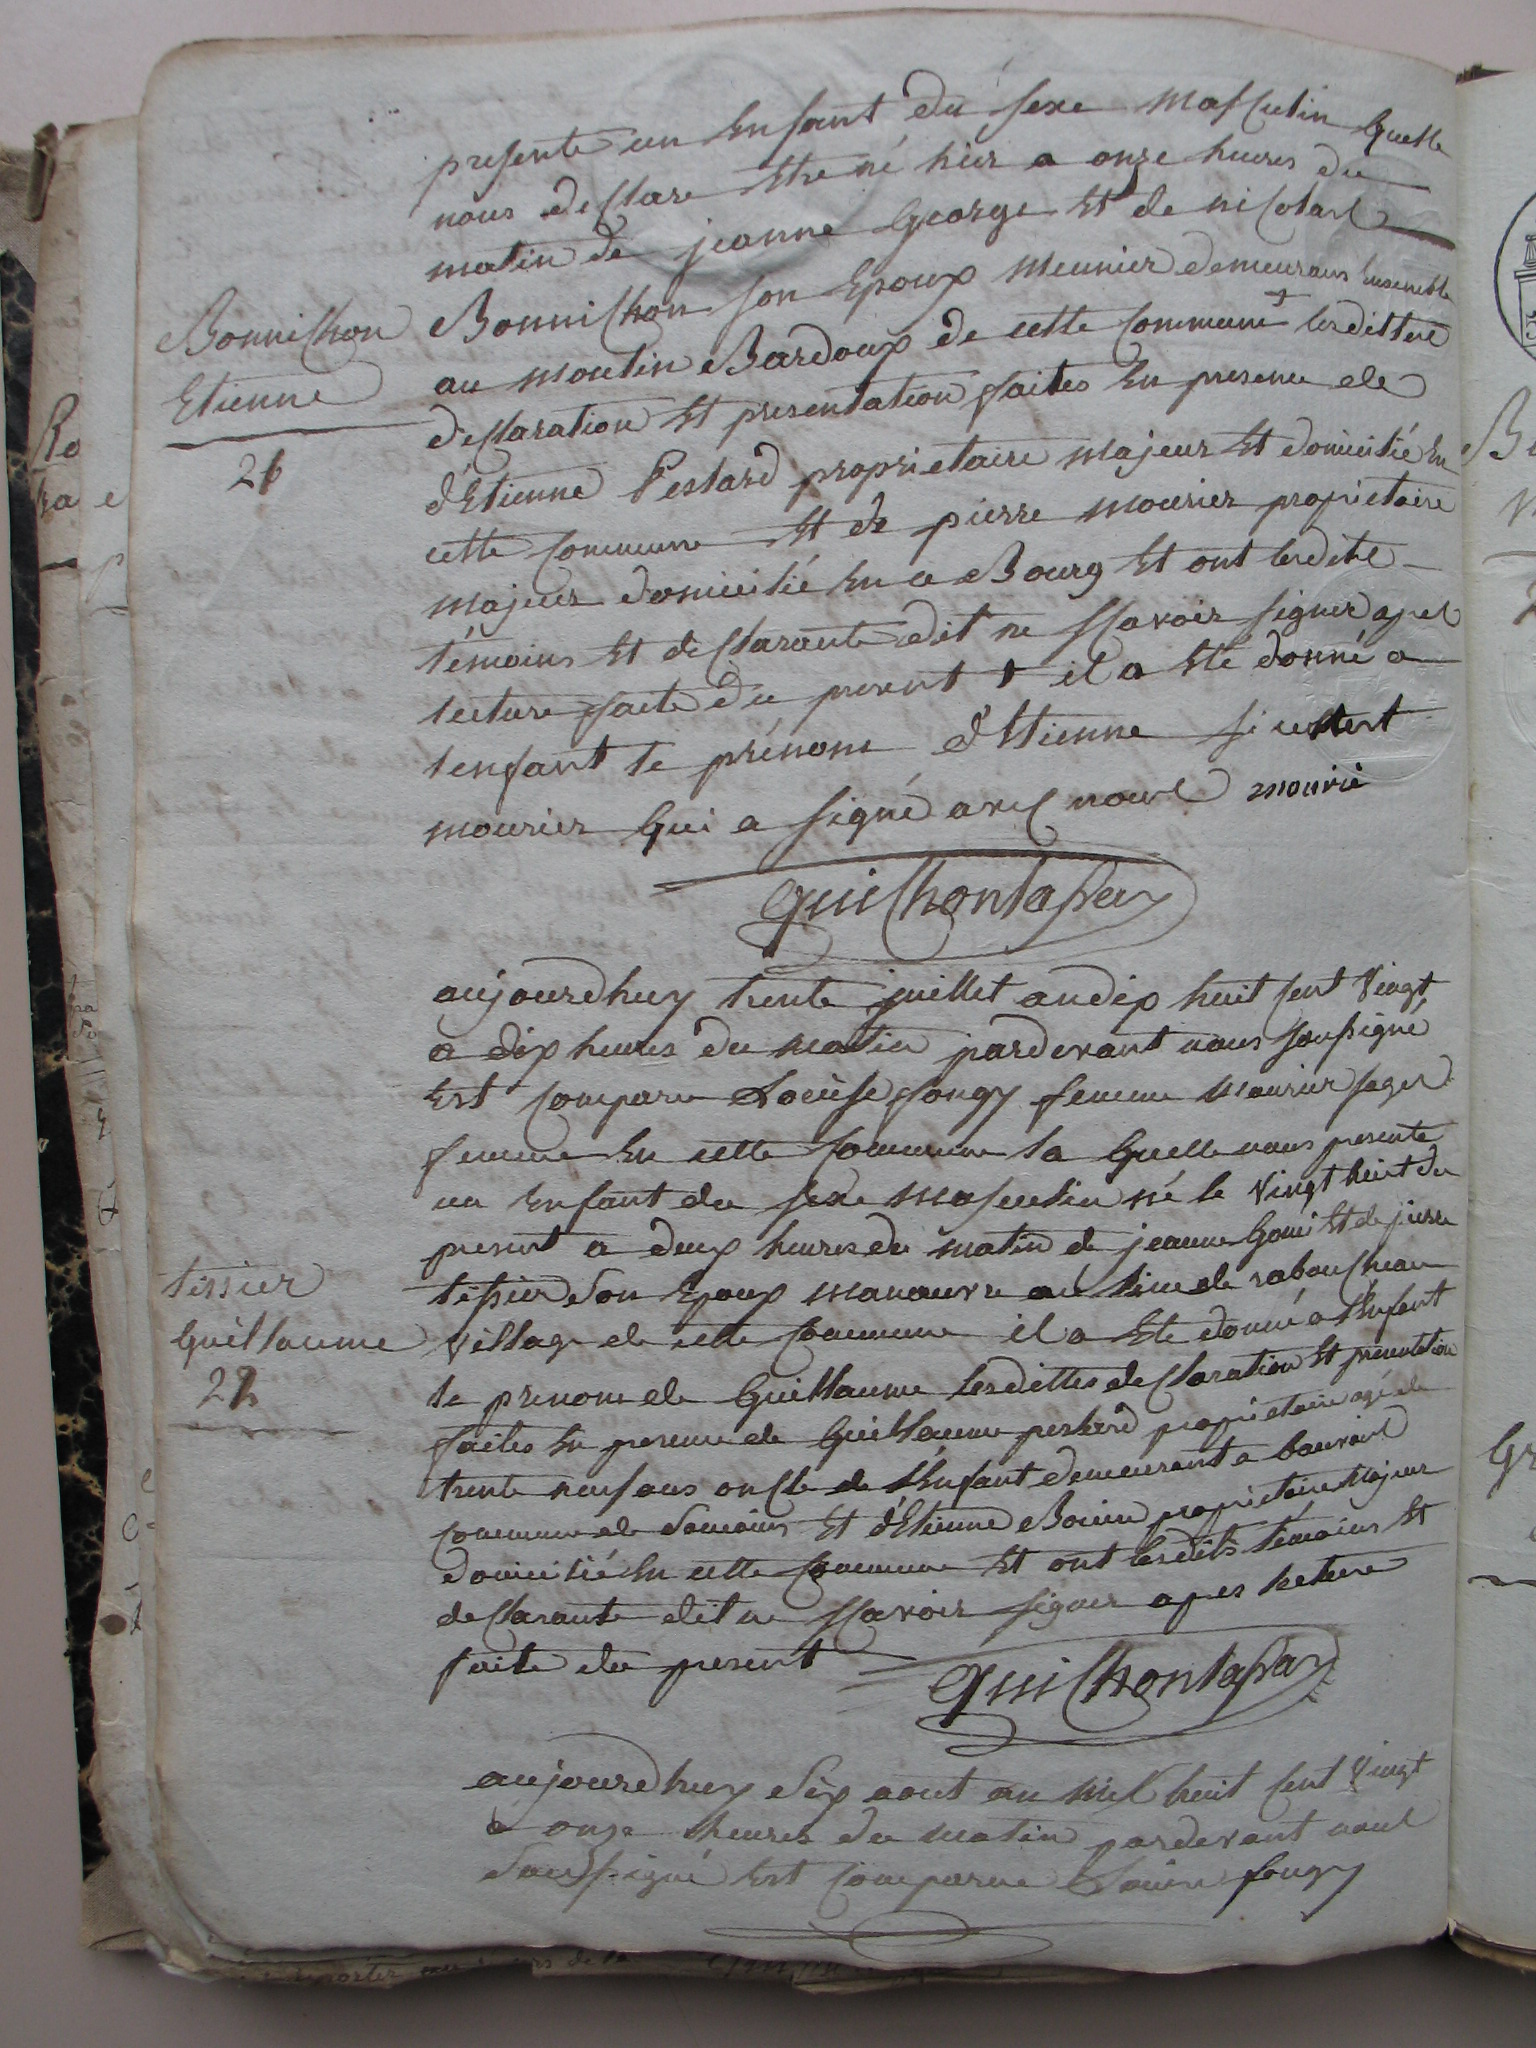 presente un Enfant du sexe Masculin quelle
nous declare Etre né hier a onze heures du
matin de jeanne George Et de nicolas
Bonnichon
Etienne
26
Bonnichon son Epoux Meunier demeurans Ensemble
au Moulin Bardoux de cette Commune + lesdittes
declaration Et presentation faites En presence de
d'Etienne Pestard proprietaire majeur Et domicilié En
cette Commune Et de pierre mourier proprietaire
majeur domicilié En ce Bourg Et ont lesdits
témoins Et declarante dit ne sçavoir signer apes
lecture faite du present + il a Eté donné a
l'enfant le prénom d'Etienne si ce n'est
mourier qui a signé avec nous mourié
Guichontafray
aujourdhuy trente juillet an dix huit cent Vingt
a dix heures du matin pardevant nous soussigné
Est Comparu Louise fongy femme Mourier sage
femme En cette Commune la quelle nous presente
un Enfant du sexe Masculin né le Vingt huit du
present a deux heures du matin de jeanne Et de pierre
tissier
Guillaume
27
tessier Son Epoux Manœuvre au lieu de
Village de cette Commune il a Eté donné a l'Enfant
le prenom de Guillaume lesdittes declaration Et presentation
faites En presence de Guillaume pestard proprietaire agé de
trente neuf ans oncle de l'Enfant demeurant a
Commune de Et d'Etienne proprietaire Majeur
domicilié En cette Commune Et ont lesdits témoins Et
declarante dit ne sçavoir signer apes lecture
faite du present
Guichontafray
aujourdhuy Six aout an Mil huit cent Vingt
a onze heures du matin pardevant nous
Soussigné Est Comparue Louise fongy